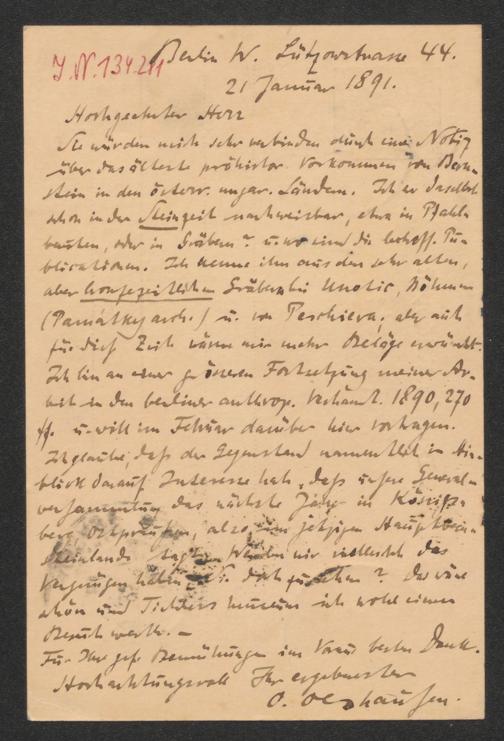 J.N. 134.211
Berlin W. Lützowstrasse 44.
21 Januar 1891.
Hochgeehrter Herr
Sie würden mich sehr verbinden durch eine Notiz
über das älteste prähistor. Vorkommen von Bern-
stein in den österr. ungar. Ländern. Ist er daselbst
schon in der Steinzeit nachweisbar, etwa in Pfahl-
bauten, oder in Gräbern? u. wo sind die betreff. Pu-
blicationen. Ich kenne ihn aus den sehr alten,
aber bronzezeitlichen Gräbern bei Unetic, Böhmen
(Památky arch.) u. von Peschiera, aber auch
für diese Zeit wären mir mehr Beläge erwünscht.
Ich bin an einer größeren Fortsetzung meiner Ar-
beit in den berliner anthrop. Verhandl. 1890, 270
ff. u. will im Februar darüber hier vortragen.
Ich glaube, daß der Gegenstand namentlich im Hin-
blick darauf Interesse hat, daß unsere General-
versammlung das nächste Jahr in Königs-
berg Ostpreußen, also im jetzigen Haupt
tagt. Werden wir vielleicht das
Vergnügen haben, Sie dort zu sehen? Das wäre
schön und Tischlers Museum ist wohl einen
Besuch werth. —
Für Ihre gef. Bemühungen im Voraus besten Dank.
Hochachtungsvoll Ihr ergebenster
O. Olshausen.